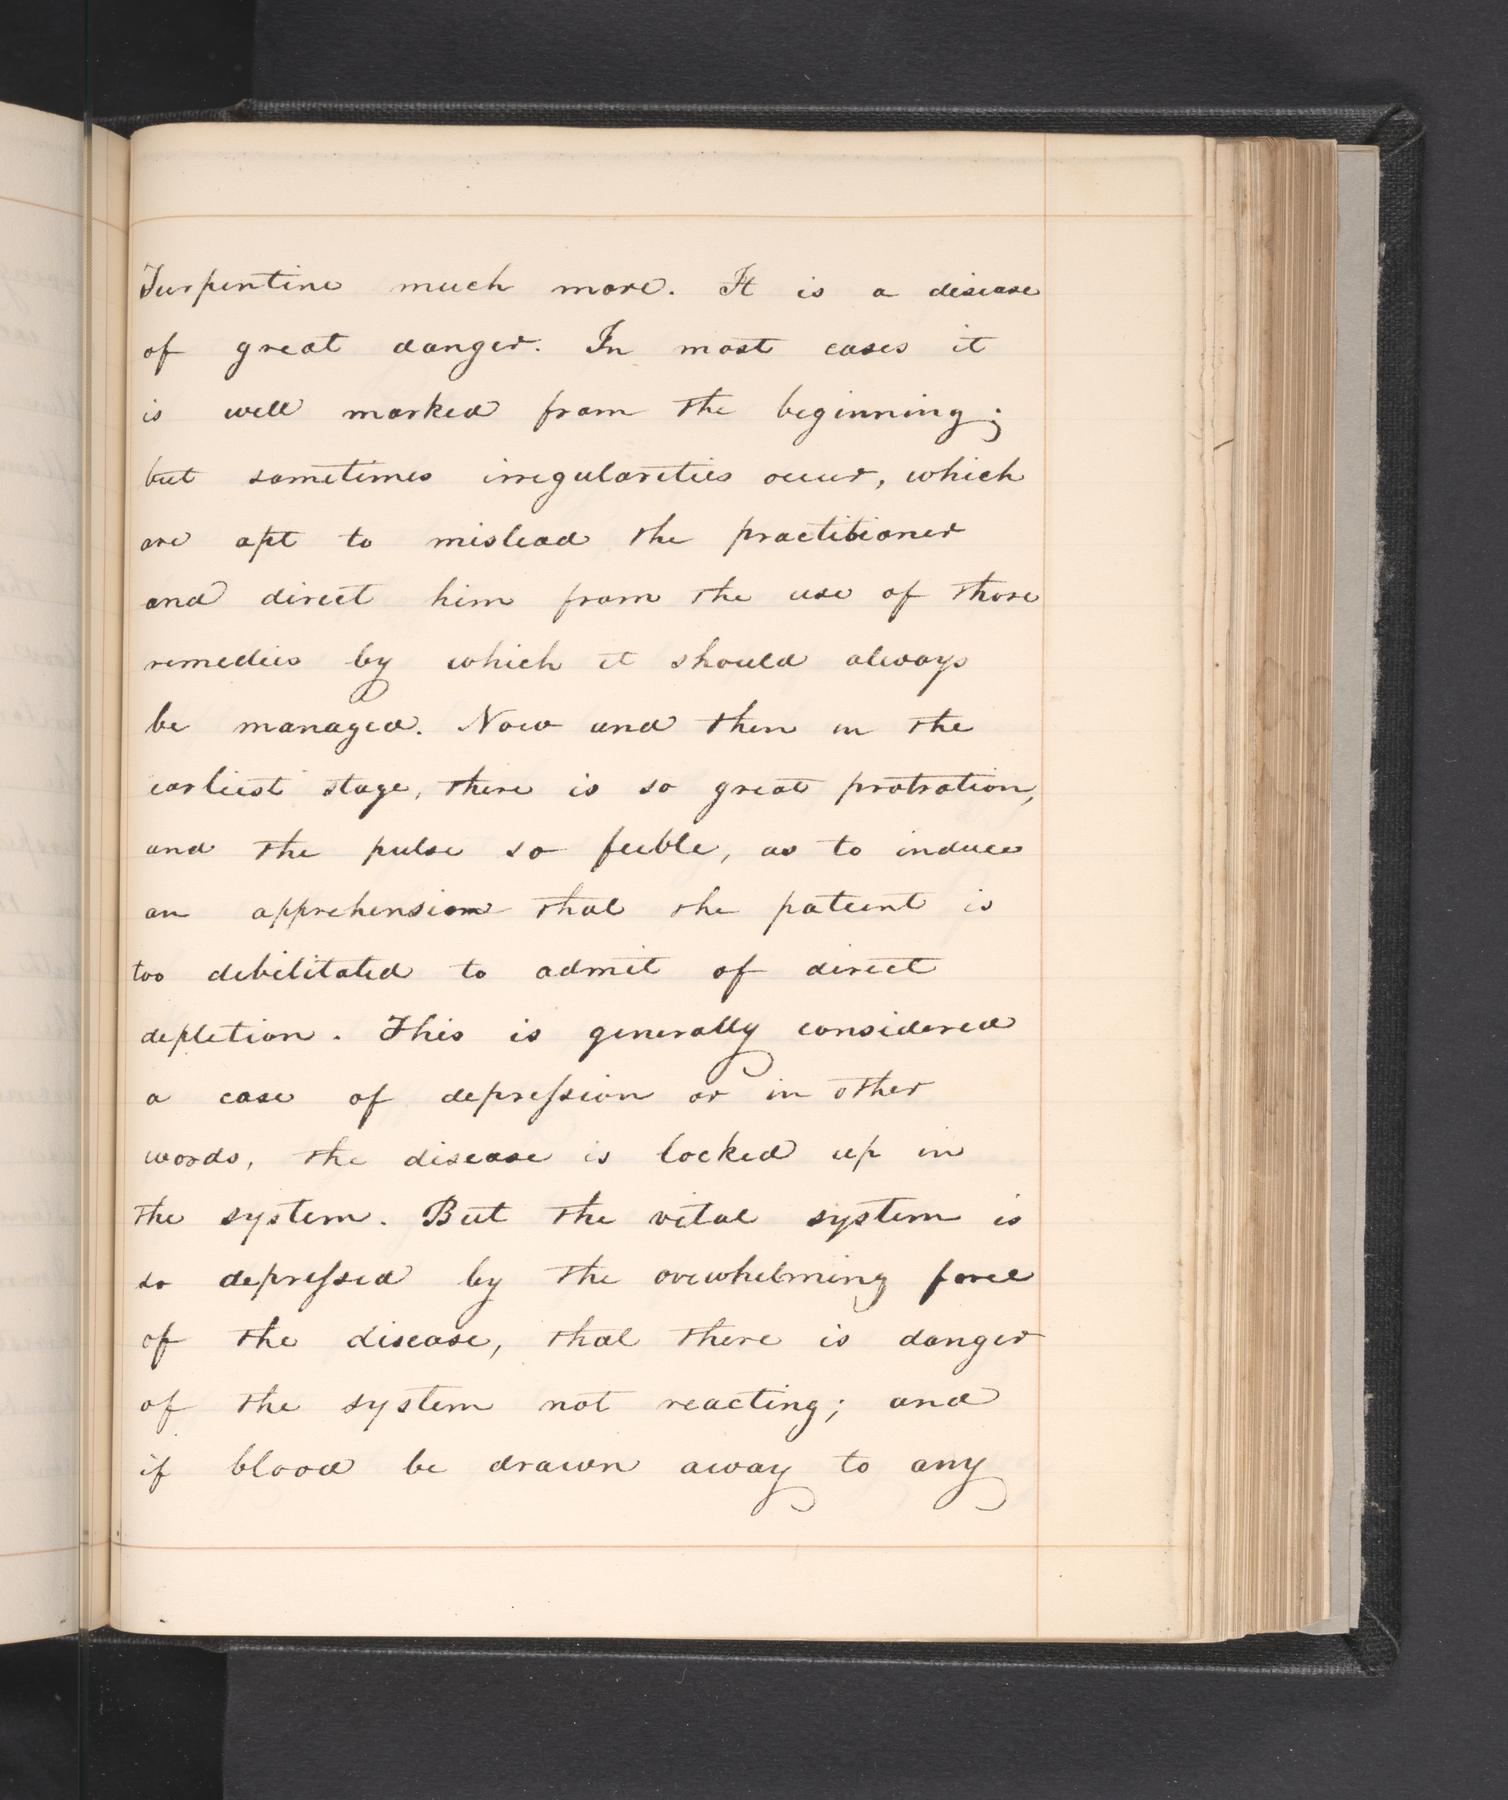 Turpentine much more. It is a disease
of great danger. In most cases it
is well marked from the beginning;
but sometimes irregularities occur, which
are apt to mislead the practitioner
and direct him from the use of those
remedies by which it should always
be managed. Now and then in the
earliest stage, there is so great protration,
and the pulse so feeble, as to induce
an apprehension that the patient is
too debilitated to admit of direct
depletion. This is generally considered
a case of depreſsion or in other
words, the disease is locked up in
the system. But the vital system is
so depreſsed by the overwhelming force
of the disease, that there is danger
of the system not reacting; and
if blood be drawn away to any